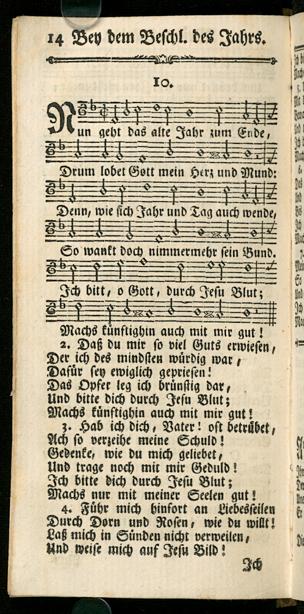 14 Bey dem Beschl. des Jahrs.
10.
Nun geht das alte Jahr zum Ende,
Drum lobet Gott mein Herz und Mund:
Denn, wie sich Jahr und Tag auch wende,
So wankt doch nimmermehr sein Bund.
Ich bitt, o Gott, durch Jesu Blut;
Machs künftighin auch mit mir gut!
2. Daß du mir so viel Guts erwiesen,
Der ich des mindsten würdig war,
Dafür sey ewiglich gepriesen!
Das Opfer leg ich brünstig dar,
Und bitte dich durch Jesu Blut;
Machs künftighin auch mit mir gut!
3. Hab ich dich, Vater! oft betrübet,
Ach so verzeihe meine Schuld!
Gedenke, wie du mich geliebet,
Und trage noch mit mir Geduld!
Ich bitte dich durch Jesu Blut;
Machs nur mit meiner Seelen gut!
4. Führ mich hinfort an Liebesseilen
Durch Dorn und Rosen, wie du willt!
Laß mich in Sünden nicht verweilen,
Und weise mich auf Jesu Bild!
Ich